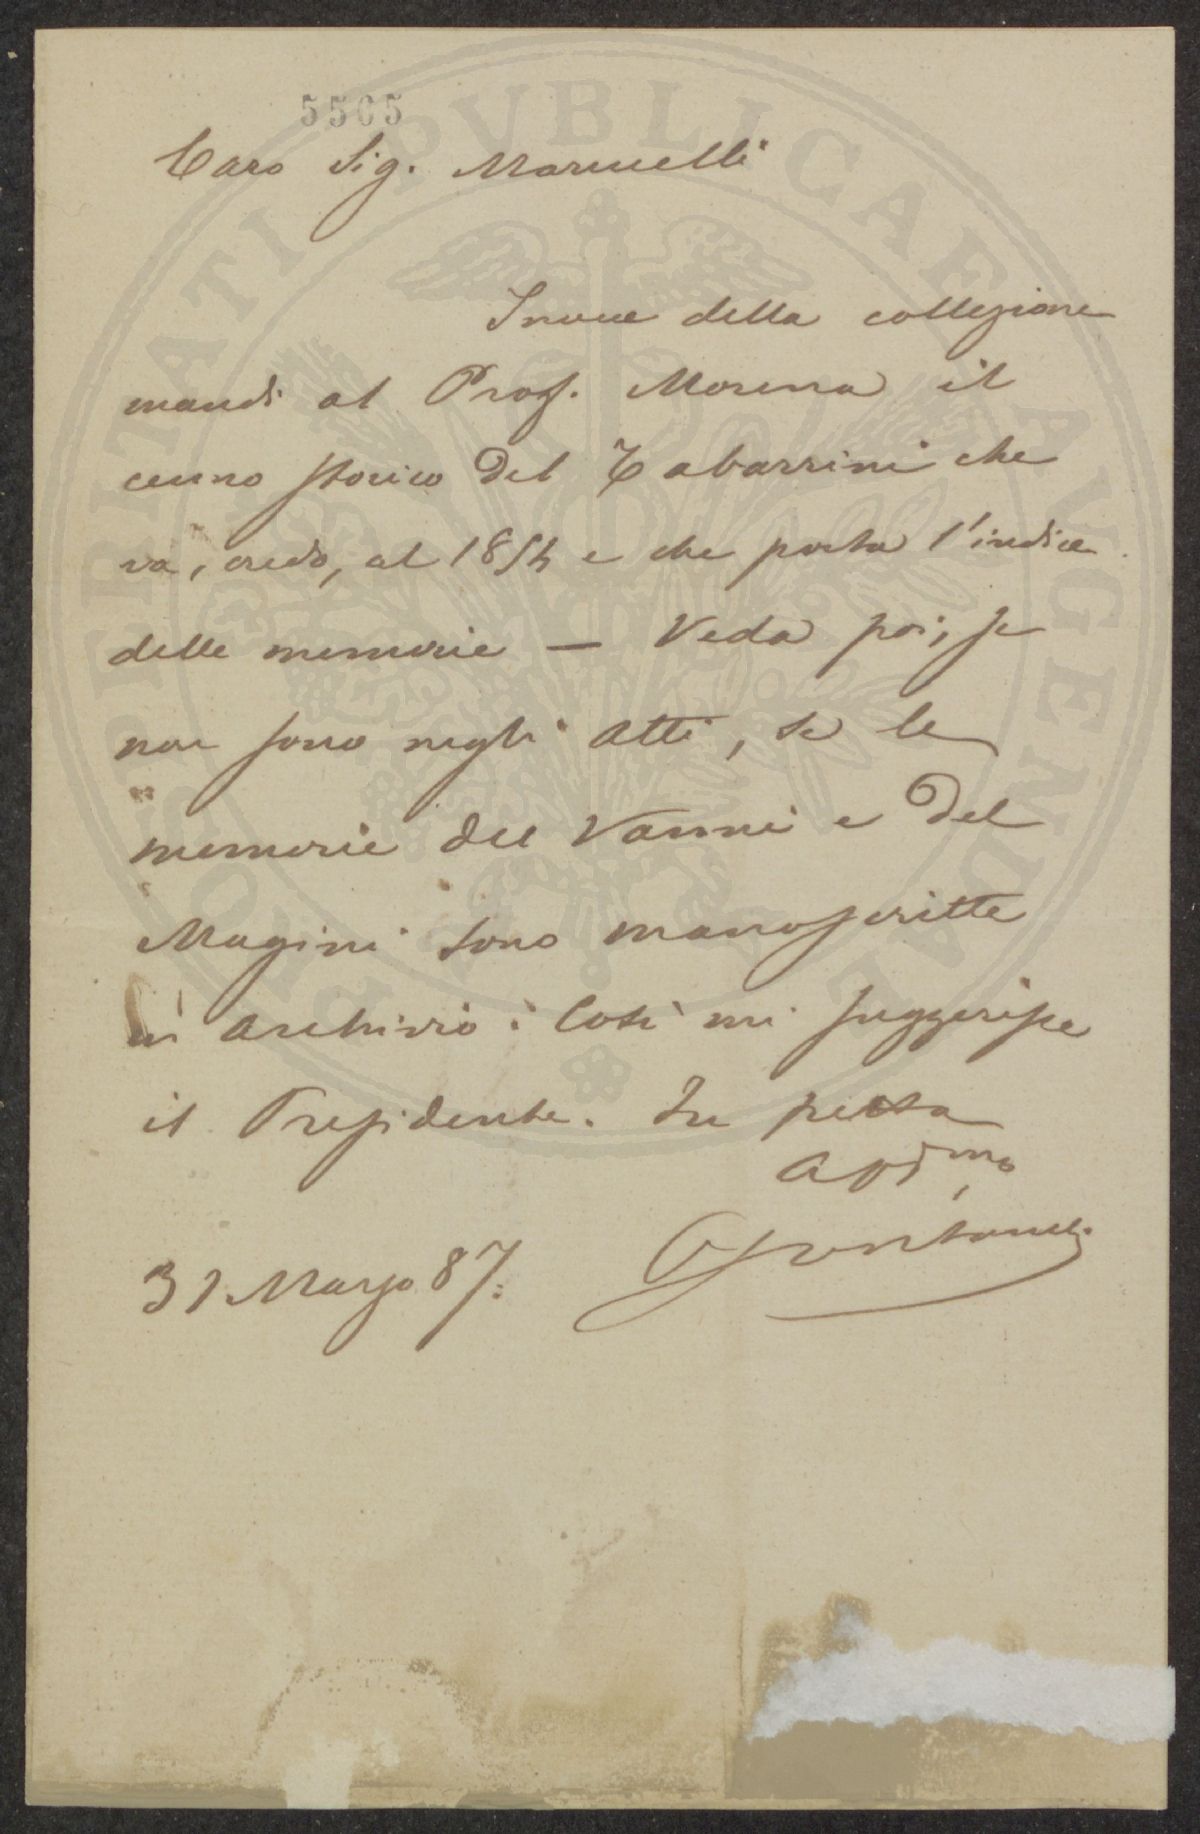 5505
Caro Sig. Marucelli
Invece della collezione
mandi al Prof. Morena il
cenno storico del Tabarrini che
va, credo, al 1854 e che porta l'indice
delle memorie — Veda poi, se
non sono negli atti, se le
memorie del Vanni e del
Magini sono manoscritte
in archivio: Così mi suggerisce
il Presidente. In fretta
aff mo
31 Marzo 87.
PROSPERITATI PVBLICAE AVGENDAE